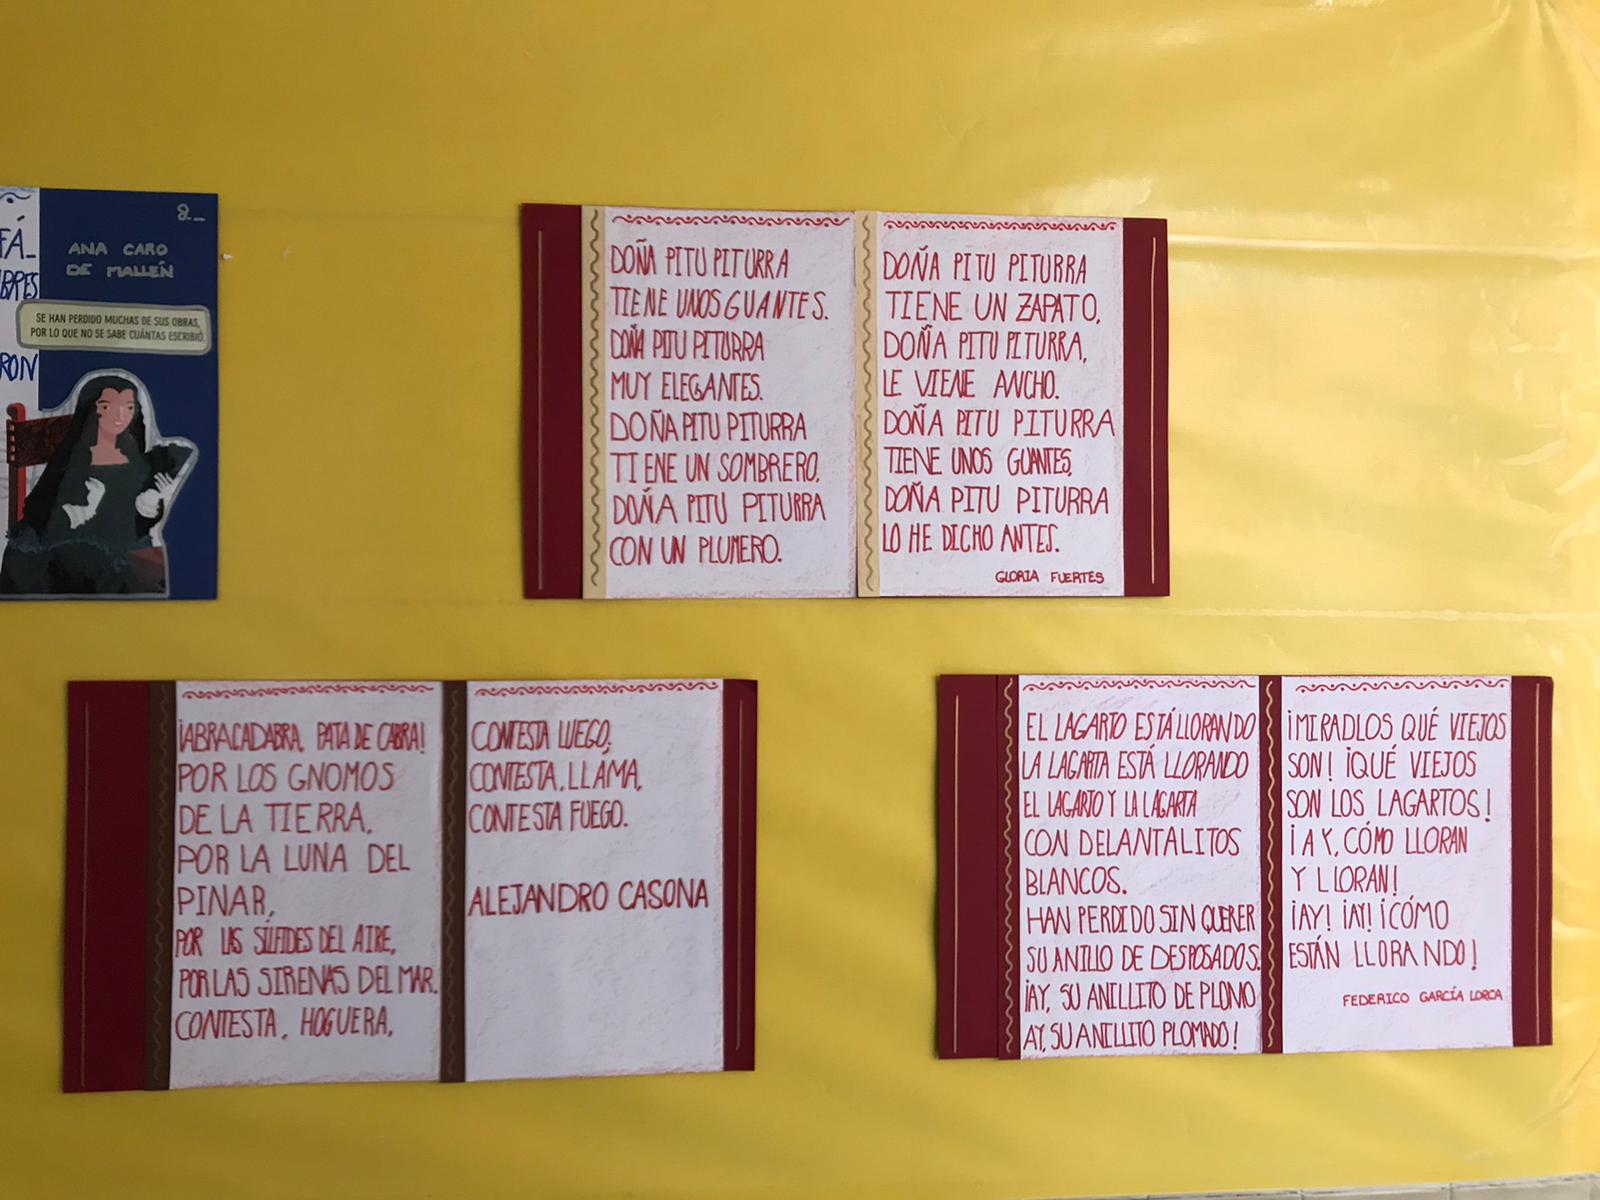 8._
ANA CARO
DE MALLÉN
SE HAN PERDIDO MUCHAS DE SUS OBRAS,
POR LO QUE NO SE SABE CUÁNTAS ESCRIBIÓ.
DOÑA PITU PITURRA
TIENE UNOS GUANTES.
DOÑA PITU PITURRA
MUY ELEGANTES.
DOÑA PITU PITURRA
TIENE UN SOMBRERO.
DOÑA PITU PITURRA
CON UN PLUMERO.
DOÑA PITU PITURRA
TIENE UN ZAPATO,
DOÑA PITU PITURRA,
LE VIENE ANCHO.
DOÑA PITU PITURRA
TIENE UNOS GUANTES,
DOÑA PITU PITURRA
LO HE DICHO ANTES.
GLORIA FUERTES
¡ABRACADABRA, PATA DE CABRA!
POR LOS GNOMOS
DE LA TIERRA,
POR LA LUNA DEL
PINAR,
POR LAS SÍLFIDES DEL AIRE,
POR LAS SIRENAS DEL MAR.
CONTESTA, HOGUERA,
CONTESTA LUEGO;
CONTESTA, LLAMA,
CONTESTA FUEGO.
ALEJANDRO CASONA
EL LAGARTO ESTÁ LLORANDO
LA LAGARTA ESTÁ LLORANDO
EL LAGARTO Y LA LAGARTA
CON DELANTALITOS
BLANCOS.
HAN PERDIDO SIN QUERER
SU ANILLO DE DESPOSADOS.
¡AY, SU ANILLITO DE PLOMO
AY, SU ANILLITO PLOMADO!
¡MIRADLOS QUÉ VIEJOS
SON! ¡QUÉ VIEJOS
SON LOS LAGARTOS!
¡AY, CÓMO LLORAN
Y LLORAN!
¡AY! ¡AY! ¡CÓMO
ESTÁN LLORANDO!
FEDERICO GARCÍA LORCA